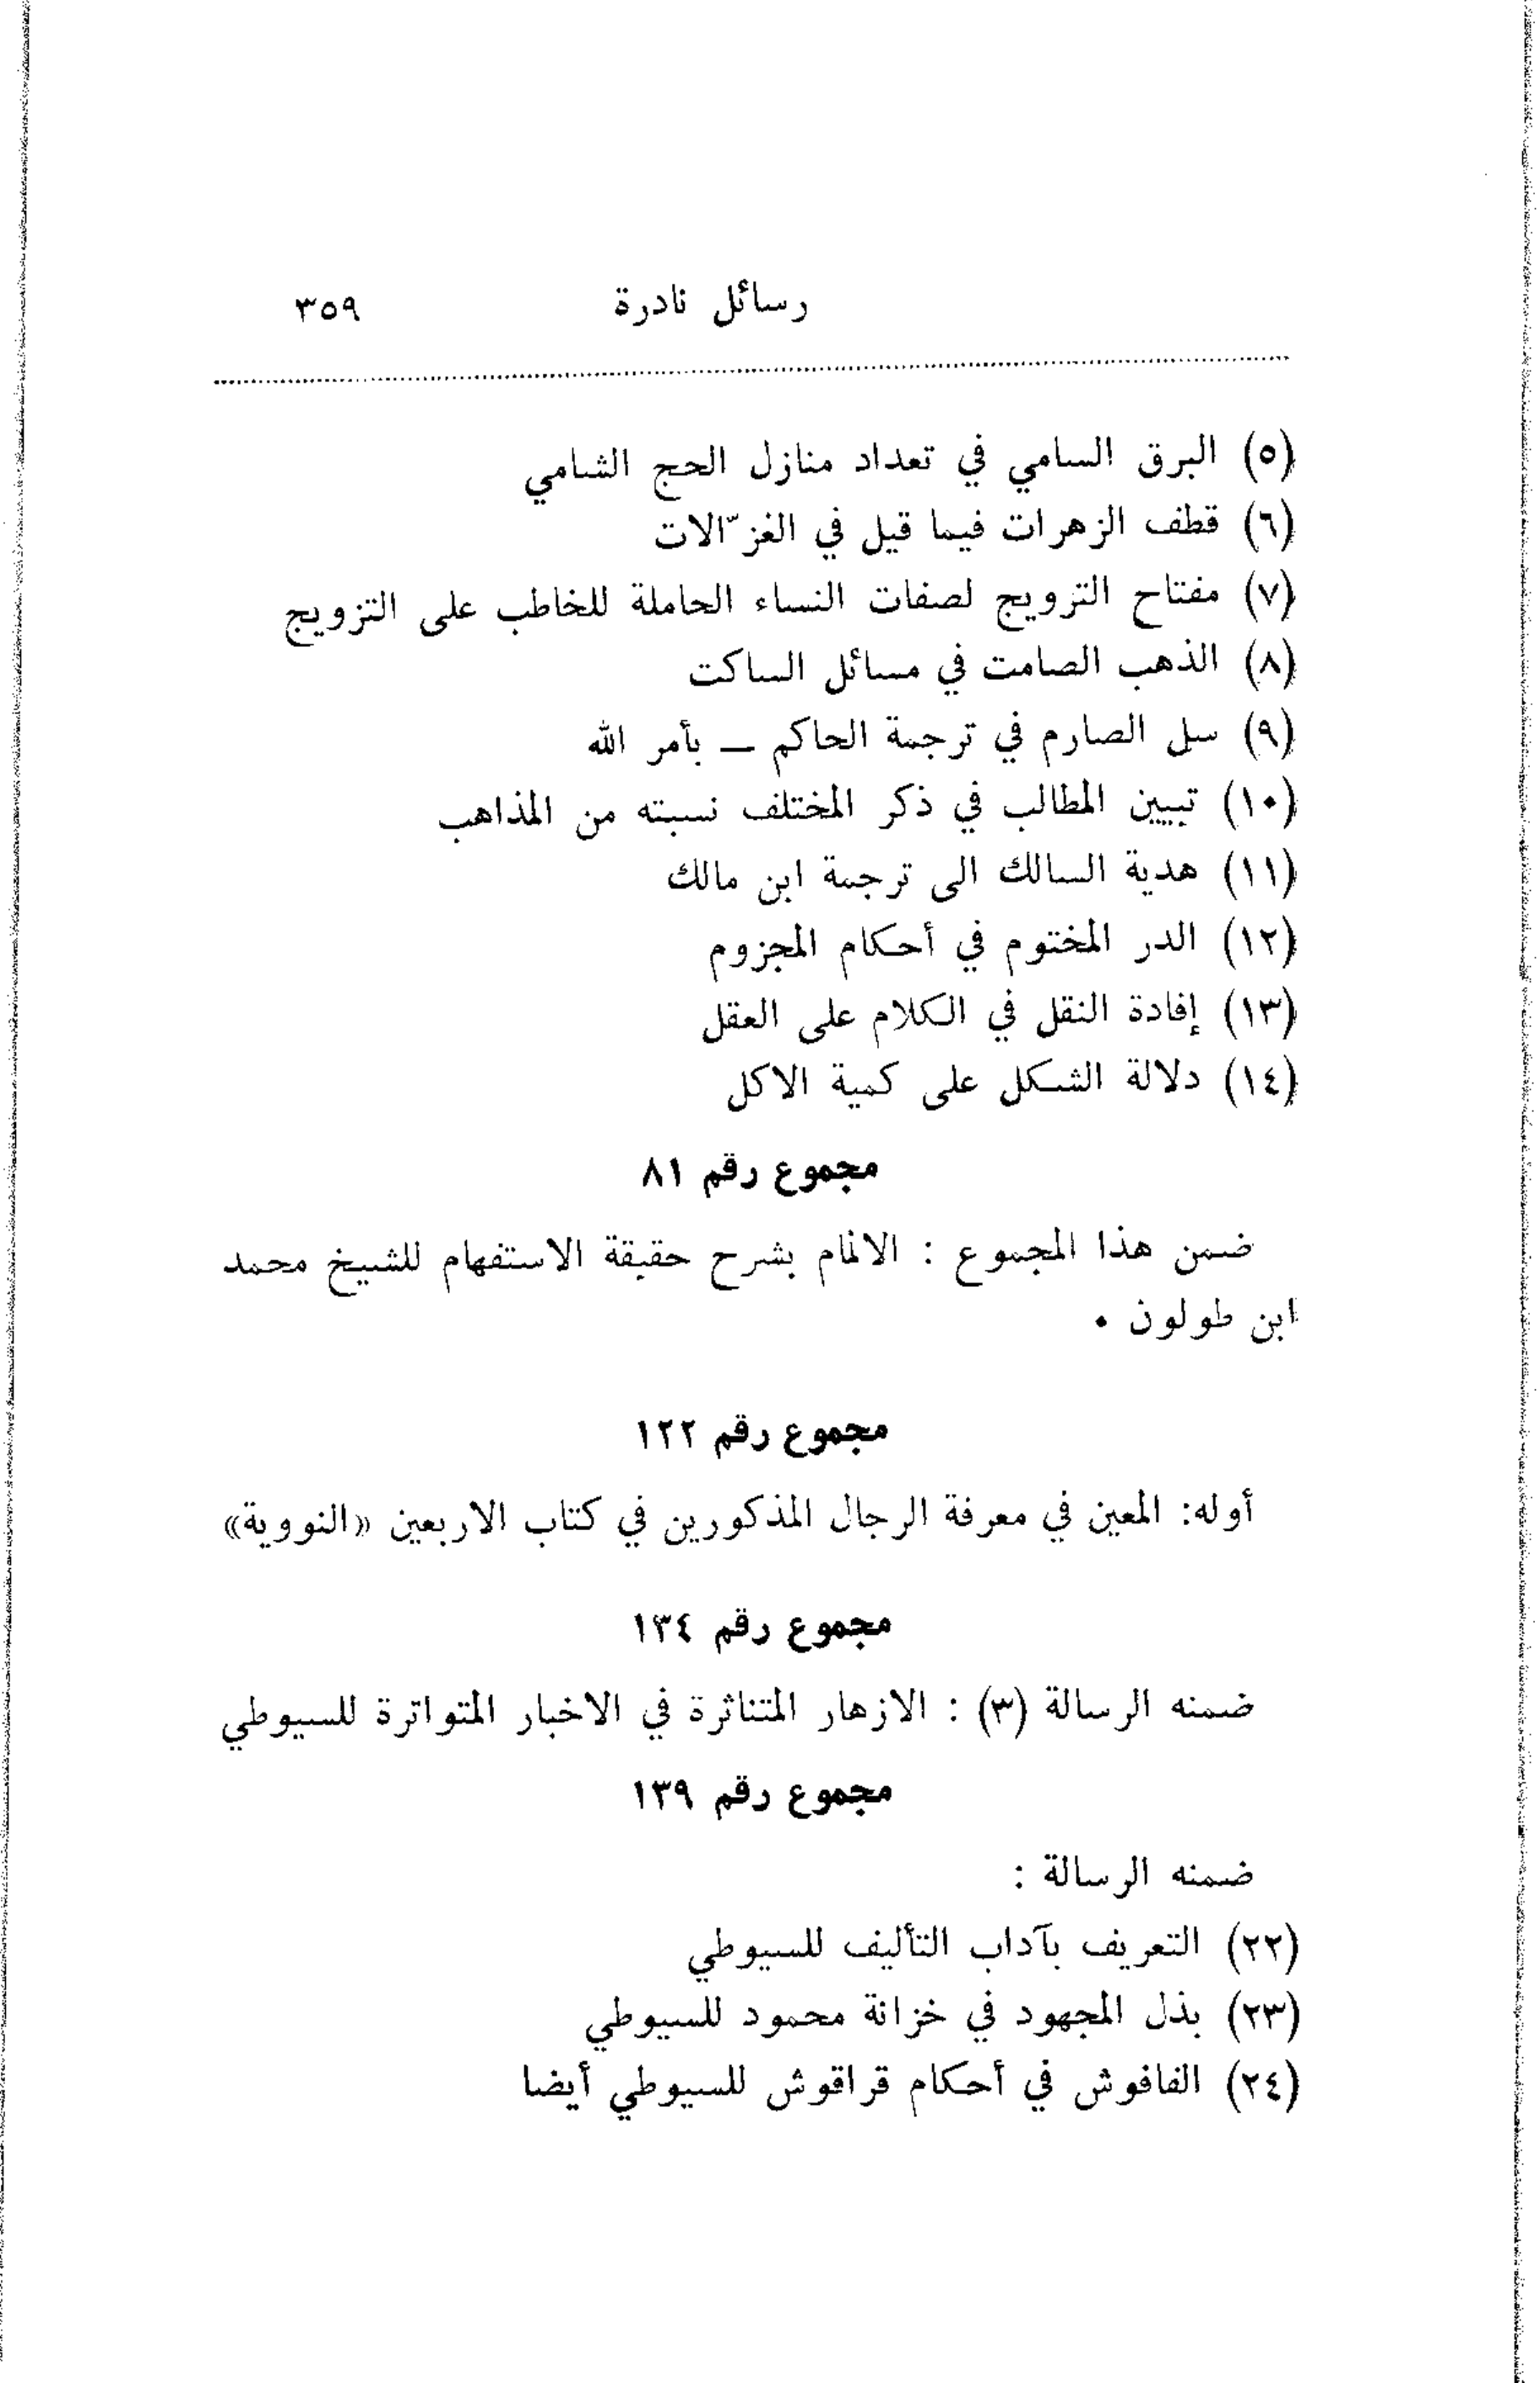 رسائل نادرة ٣٥٩
(٥) البرق السامي في تعداد منازل الحج الشامي
(٦) قطف الزهرات فيما قيل في الغزّالات
(٧) مفتاح التزويج لصفات النساء الحاملة للخاطب على التزويج
(٨) الذهب الصامت في مسائل الساكت
(٩) سل الصارم في ترجمة الحاكم — بأمر الله
(١٠) تبيين المطالب في ذكر المختلف نسبته من المذاهب
(١١) هدية السالك الى ترجمة ابن مالك
(١٢) الدر المختوم في أحكام المجزوم
(١٣) إفادة النقل في الكلام على العقل
(١٤) دلالة الشكل على كمية الاكل
مجموع رقم ٨١
ضمن هذا المجموع : الالمام بشرح حقيقة الاستفهام للشيخ محمد
ابن طولون •
مجموع رقم ١٢٢
أوله: المعين في معرفة الرجال المذكورين في كتاب الاربعين «النووية»
مجموع رقم ١٣٤
ضمنه الرسالة (٣) : الازهار المتناثرة في الاخبار المتواترة للسيوطي
مجموع رقم ١٣٩
ضمنه الرسالة :
(٢٢) التعريف بآداب التأليف للسيوطي
(٢٣) بذل المجهود في خزانة محمود للسيوطي
(٢٤) الفافوش في أحكام قراقوش للسيوطي أيضا